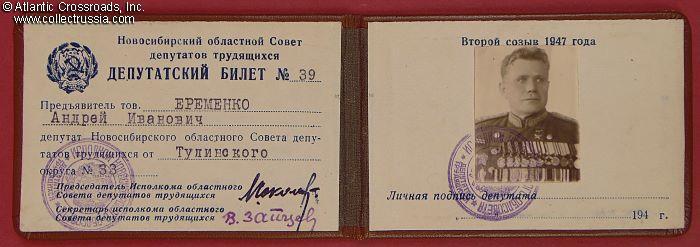 © Atlantic Crossroads, Inc.
www.collectrussia.com
Новосибирский областной Совет
депутатов трудящихся
ДЕПУТАТСКИЙ БИЛЕТ № 39
Предъявитель тов. ЕРЕМЕНКО
Андрей Иванович
депутат Новосибирского областного Совета депу-
татов трудящихся от Тулинского
округа № 33
Председатель Исполкома областного
Совета депутатов трудящихся
Секретарь исполкома областного
Совета депутатов трудящихся
В. Зайцев
Второй созыв 1947 года
Личная подпись депутата
194 г.